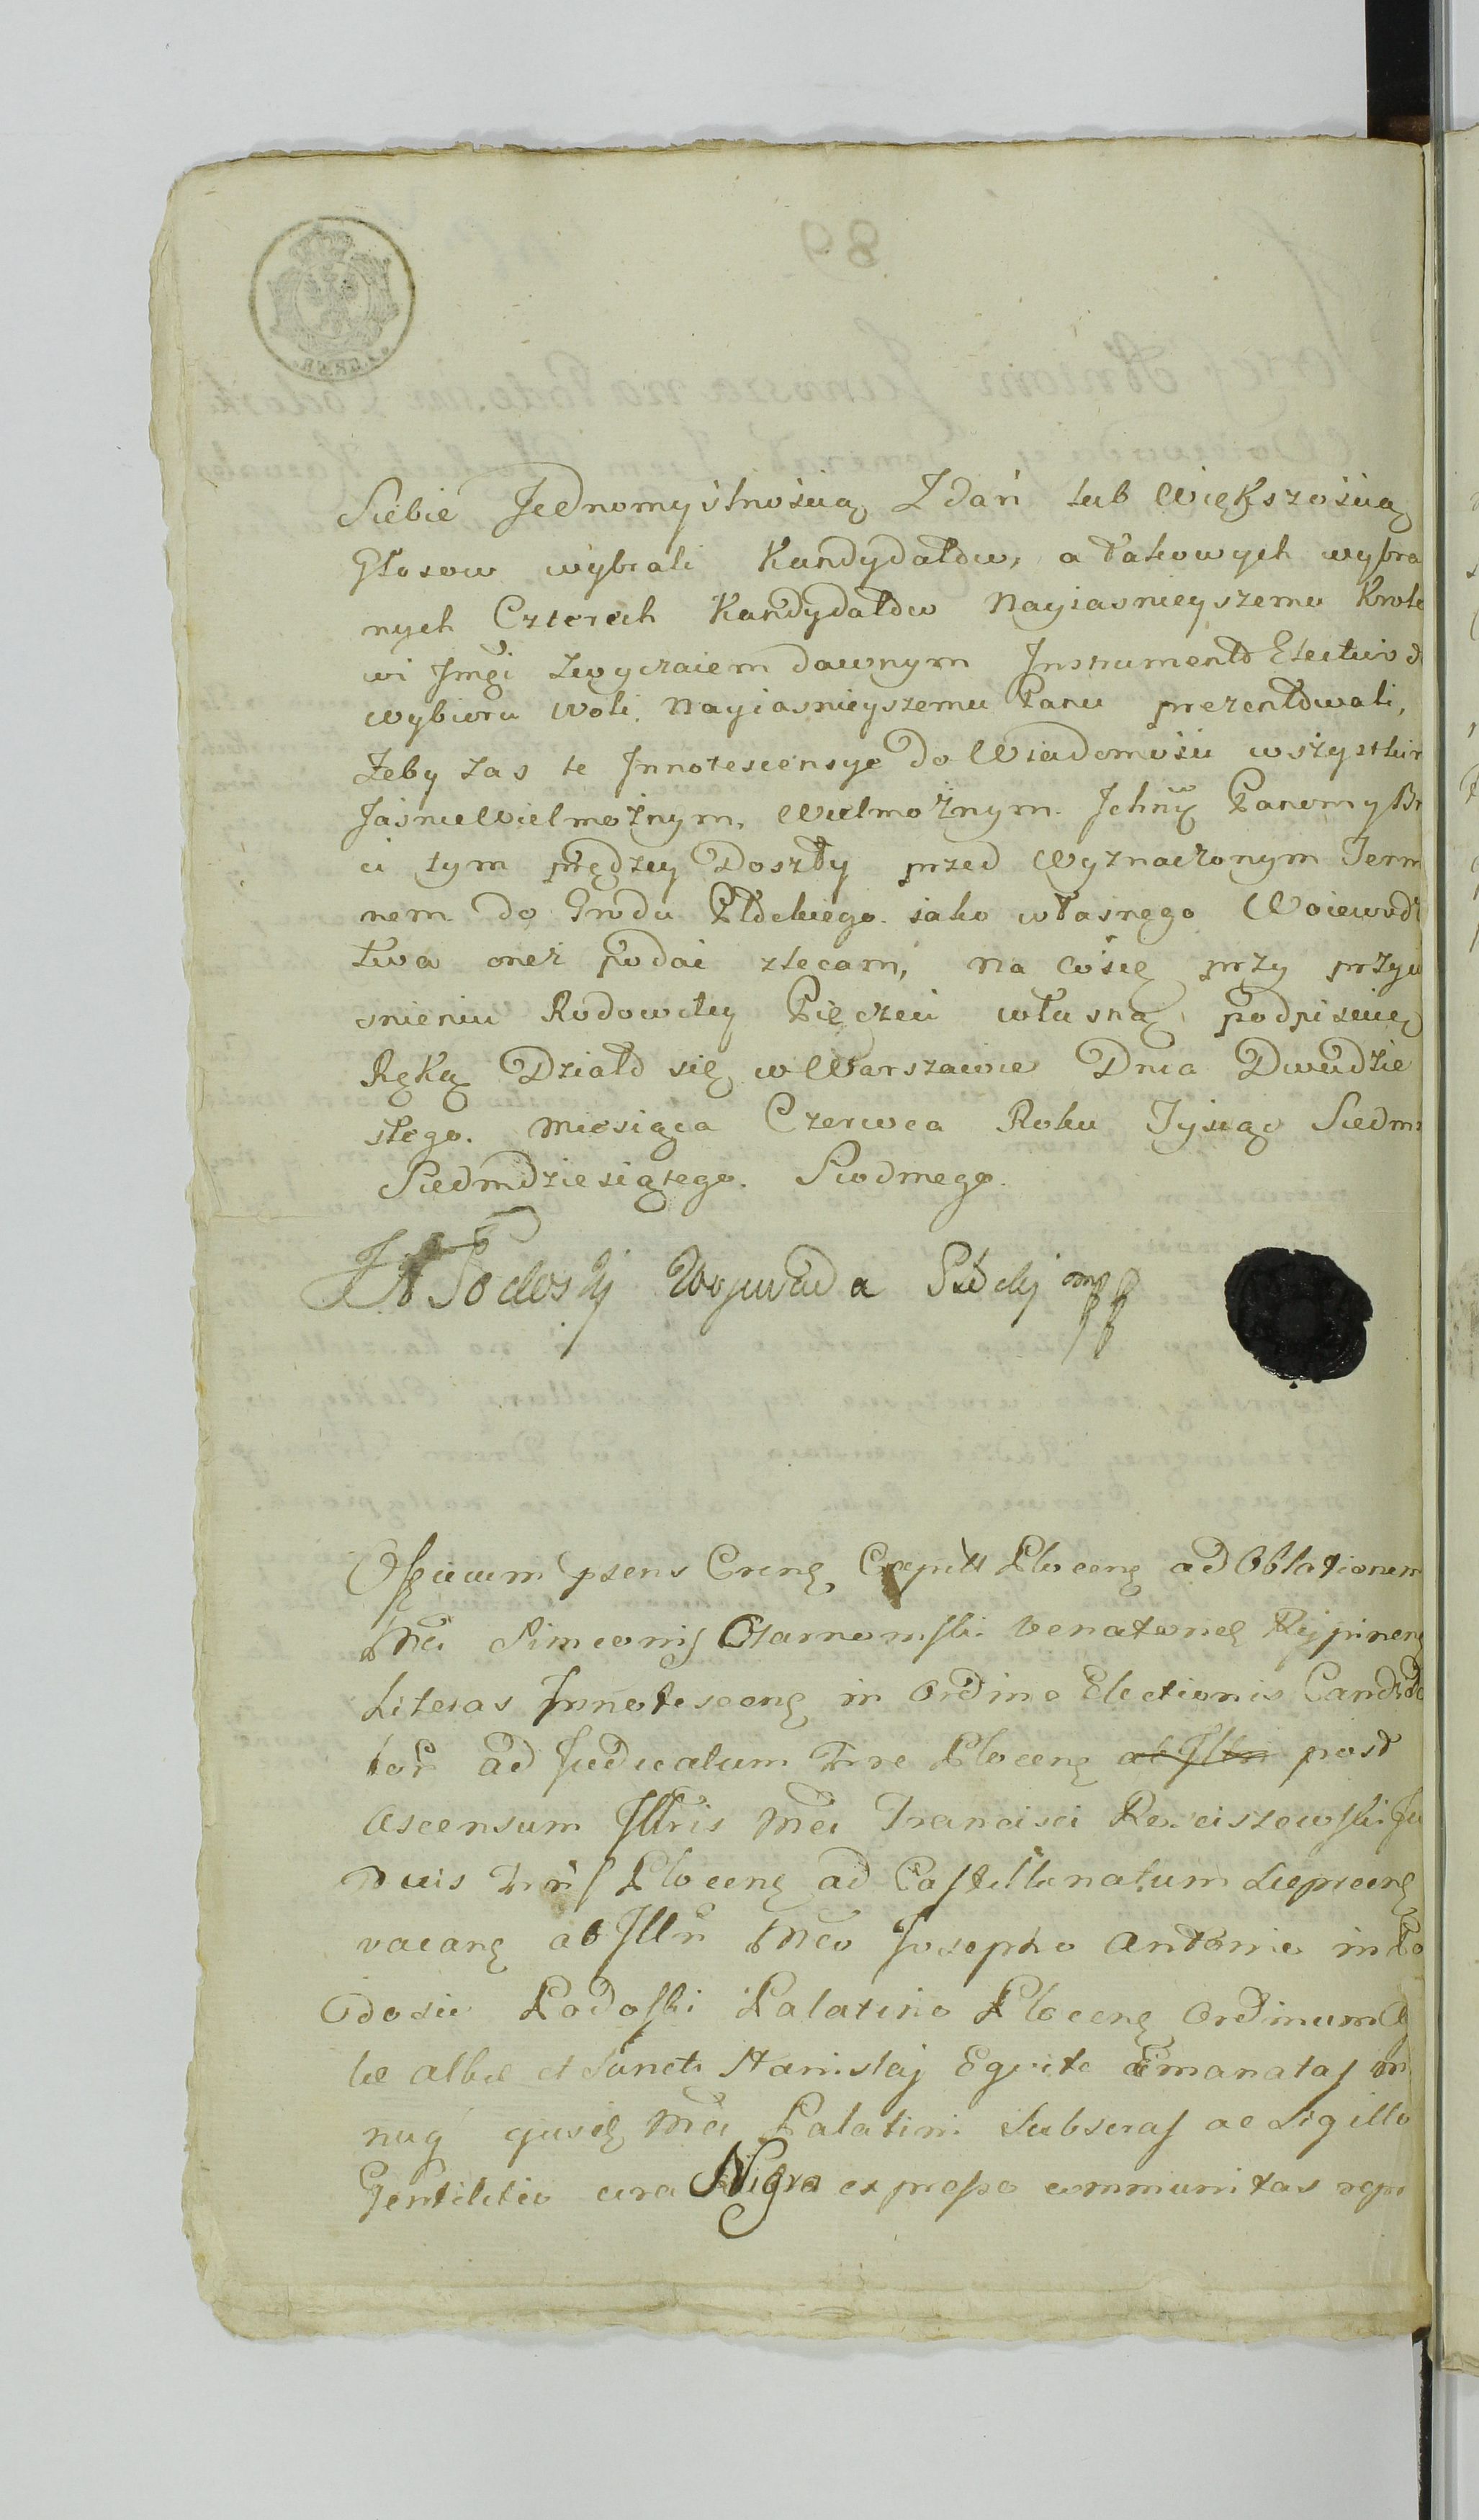 Siebie Jednomyślnością Zdań lub Większością
Głosow wybrali Kandydatow, a takowych wybra
nych Czterech Kandydatow Nayiasnieyszemu Krole
wi Jmci Zwyczaiem dawnym Instrumento Electivo d
wybioru Woli Nayiasnieyszemu Panu prezentowali,
Zeby zas te Innotescensye do Wiadomości wszystkim
Jasnie Wielmożnym, Wielmożnym Ichmć Panom y Br
ci tym prędzey Doszły przed Wyznaczonym Term
nem do Grodu Płockiego iako własnego Woiewodz
twa oneż podać zlecam, na co się przy przyci
snieniu Rodowitey Pieczęci własną podpisuię
Ręką Działo się w Warszawie Dnia Dwudzie
stego Miesiąca Czerwca Roku Tysiąc Siedm
Siedmdziesiątego Siodmego.
JAPodoski Wojewoda Płocki mpp
Officium psens Crense Capitt Plocense ad Oblationem
Mci Simeonis Czarnomski Venatoris Rypinens
Literas Innotescens in Ordine Electionis Candida
tor ad Judicatum Trre Plocens ab Illri post
Ascensum Illris Mci Francisci Kosciszewski Ju
dicis Trris Plocens ad Castellanatum
vacans ab Illri Mco Josepho Antonio in Po
dosie Podoski Palatino Plocens Ordinum Aqui
lae Albae et Sancti Stanislaj Equite Emanatas
ejusd Mci Palatini Subscras ac Sigillo
Gentilitio cera Nigra expresso communitas